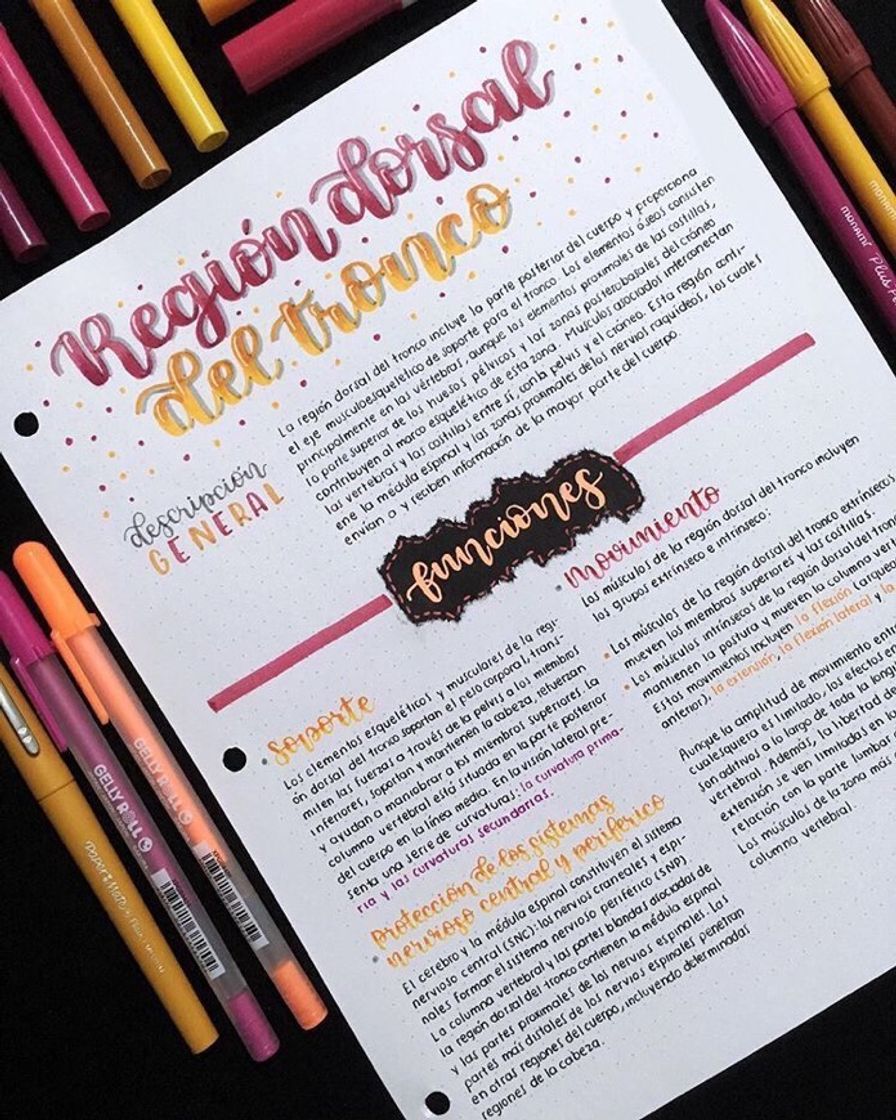 Región dorsal
del tronco
descripción
GENERAL
La región dorsal del tronco incluye la parte posterior del cuerpo y proporciona
el eje musculoesquelético de soporte para el tronco. Los elementos óseos consisten
principalmente en las vértebras, aunque los elementos proximales de las costillas,
la parte superior de los huesos pélvicos y las zonas posterobasales del cráneo
contribuyen al marco esquelético de esta zona. Músculos asociados interconectan
las vertebras y las costillas entre sí, con la pelvis y el cráneo. Esta región conti-
ene la médula espinal y las zonas proximales de los nervios raquídeos, los cuales
envían a y reciben información de la mayor parte del cuerpo.
funciones
soporte
Los elementos esqueléticos y musculares de la regi-
ón dorsal del tronco soportan el peso corporal, trans-
miten las fuerzas a través de la pelvis a los miembros
inferiores, soportan y mantienen la cabeza, refuerzan
y ayudan a maniobrar a los miembros superiores. La
columna vertebral está situada en la parte posterior
del cuerpo en la línea media. En la visión lateral pre-
senta una serie de curvaturas: la curvatura prima-
ria y las curvaturas secundarias.
Protección de los sistemas
nervioso central y periférico
El cerebro y la médula espinal constituyen el sistema
nervioso central (SNC); los nervios craneales y espi-
nales forman el sistema nervioso periférico (SNP)
La columna vertebral y las partes blandas asociadas de
la región dorsal del tronco contienen la médula espinal
y las partes proximales de los nervios espinales. Las
partes más distales de los nervios espinales penetran
en otras regiones del cuerpo, incluyendo determinadas
regiones de la cabeza.
Movimiento
Los músculos de la región dorsal del tronco incluyen
los grupos extrínseco e intrínseco:
• Los músculos de la región dorsal del tronco extrínsecos
mueven los miembros superiores y las costillas.
• Los músculos intrínsecos de la región dorsal del
mantienen la postura y mueven la columna
Estos movimientos incluyen la flexión
anterior), la extensión, la flexión lateral y
Aunque la amplitud de movimiento
cualesquiera es limitado, los efectos
son aditivos a lo largo de toda la
vertebral. Además, la libertad
extensión se ven limitadas en
relación con la parte lumbar
Los músculos de la zona más
columna vertebral.
Paper Mate
GELLY ROLL
GELLY ROLL
monami Plus
monami